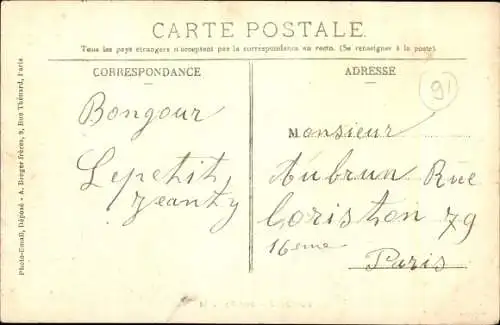 CARTE POSTALE
Tous les pays étrangers n'acceptent pas la correspondance au recto. (Se renseigner à la poste).
CORRESPONDANCE
ADRESSE
91
Bongour
Lepetit
Jeanty
Monsieur
Aubrun Rue
Loriston 79
16eme
Paris
Photo-Email, Déposé - A. Breger frères, 9, Rue Thénard, Paris